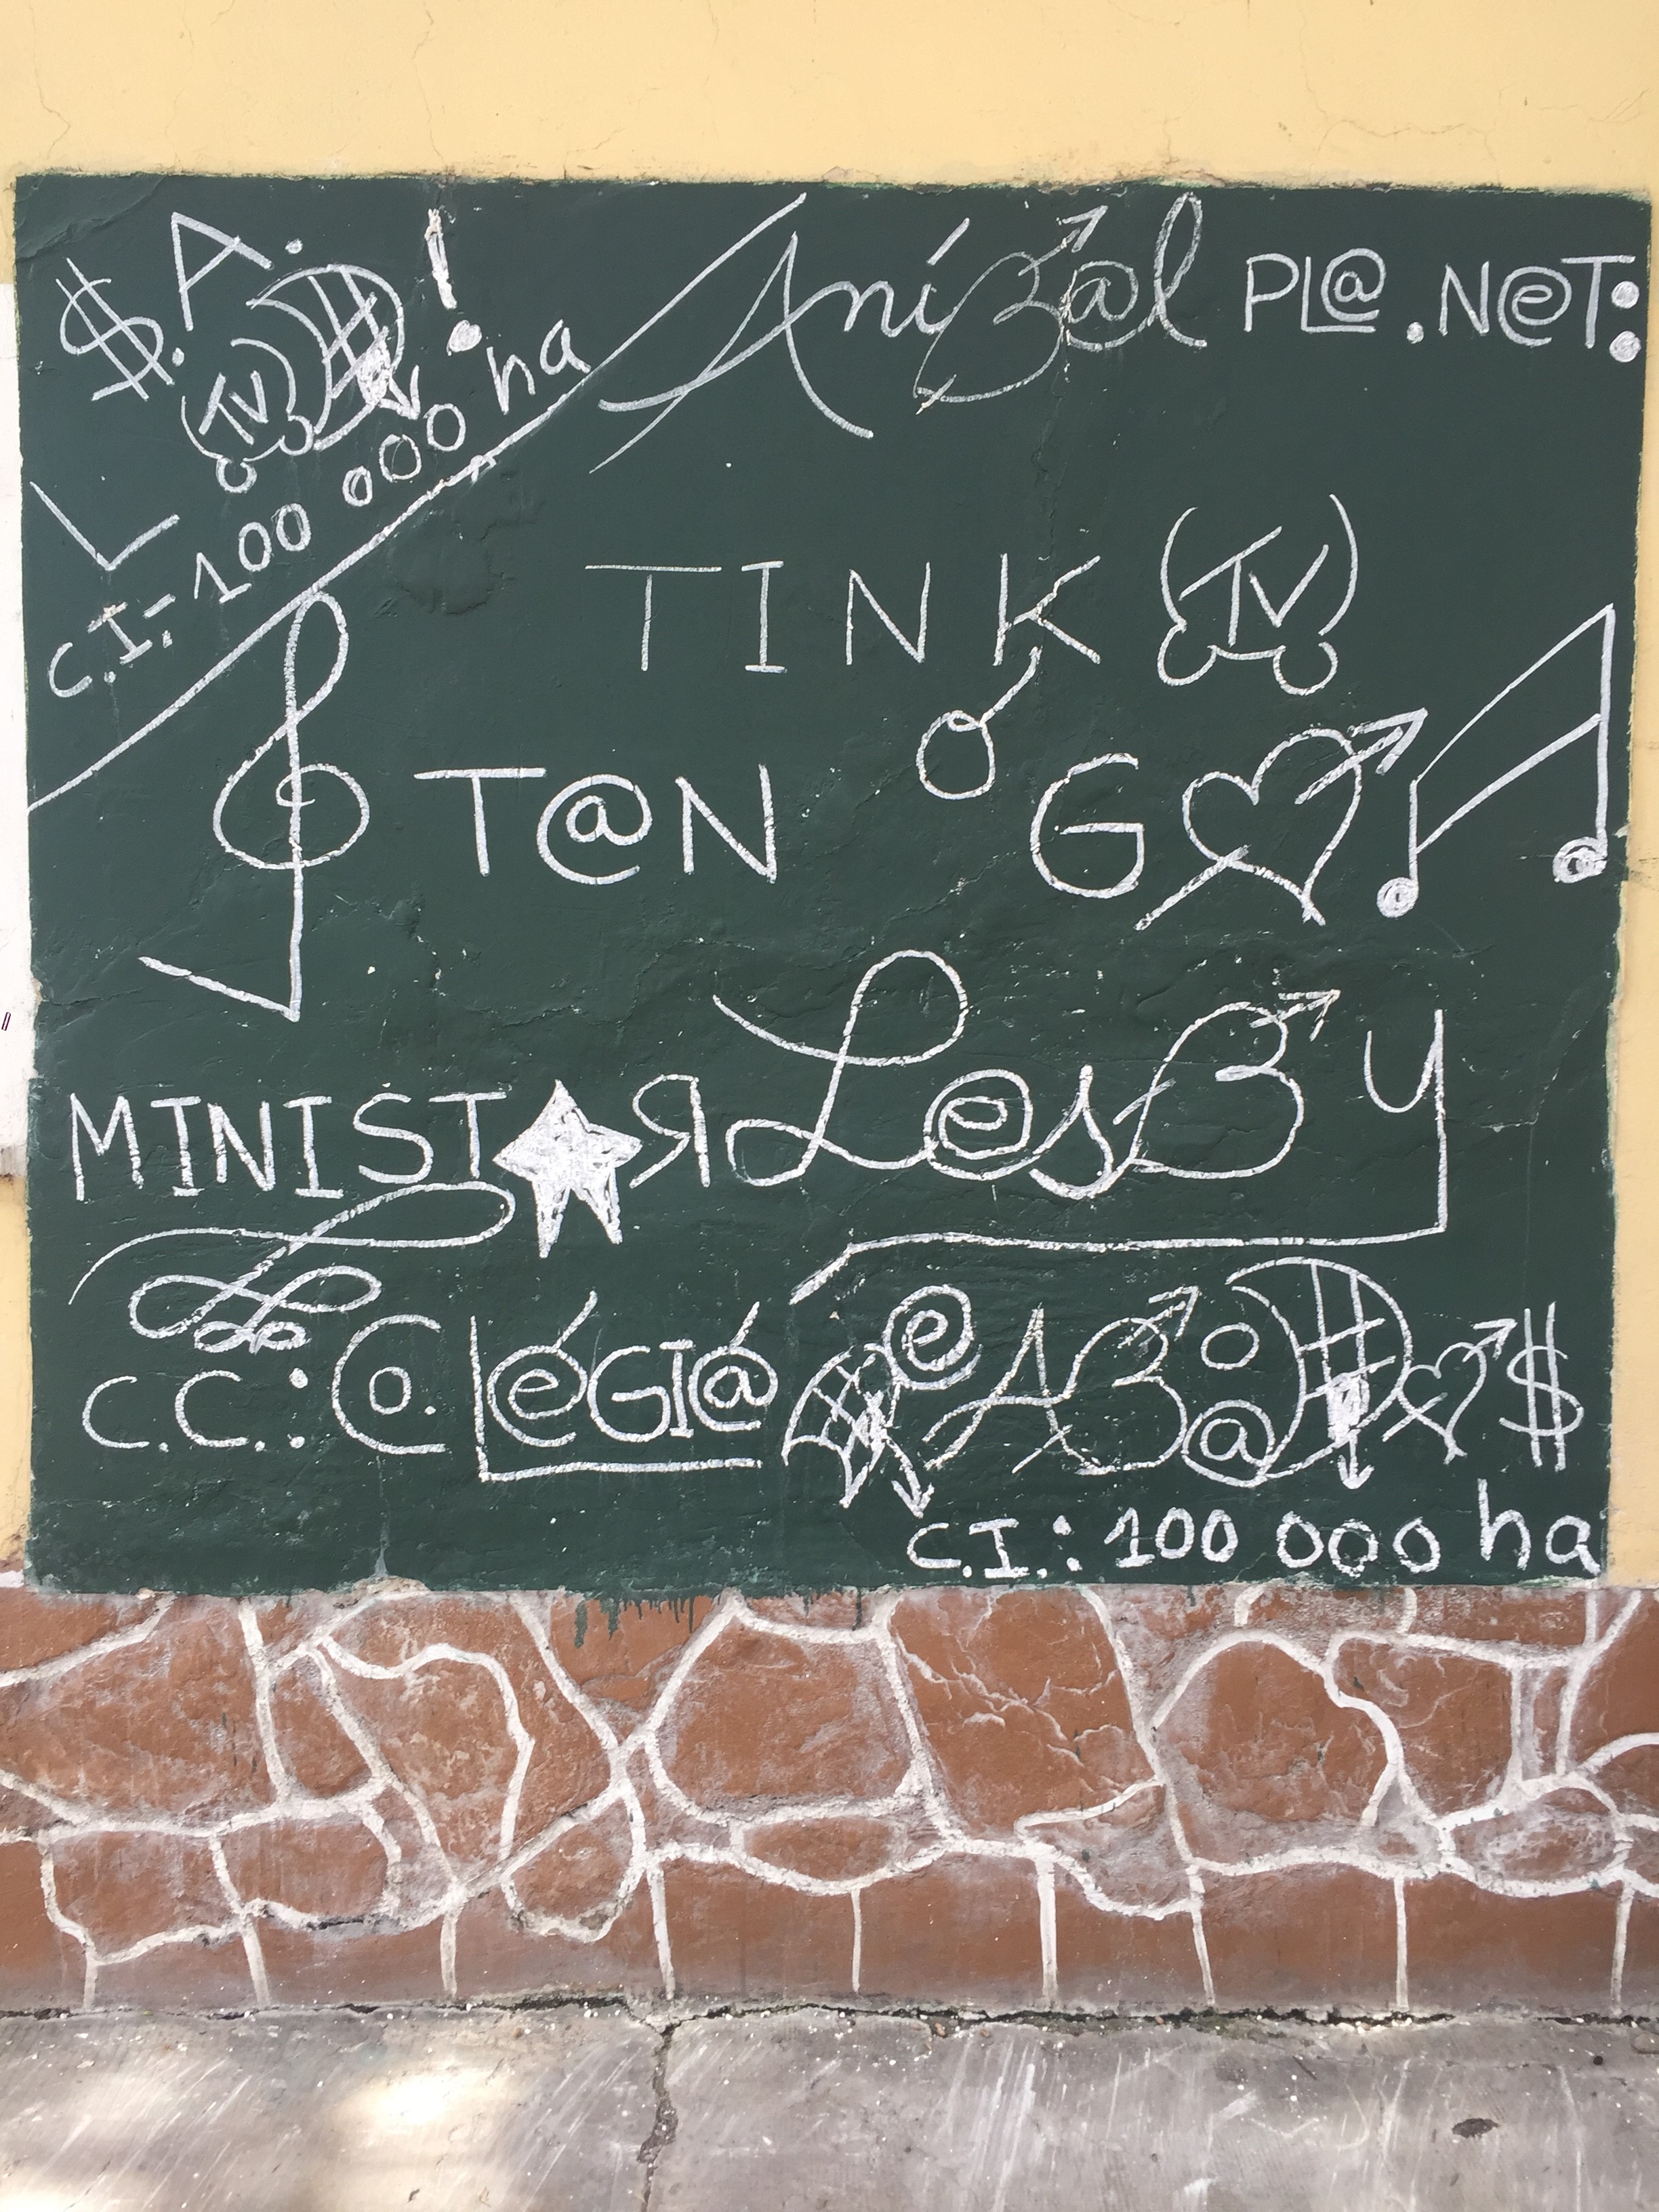 $.A.
TV
L
C.I.- 100 000 ha
Aníb@l PL@.N@T:
TINK TV
T@N GO
MINISTЯ LesBy
C.C.: CO. LéGI@
e AB @ $
C.I.: 100 000 ha